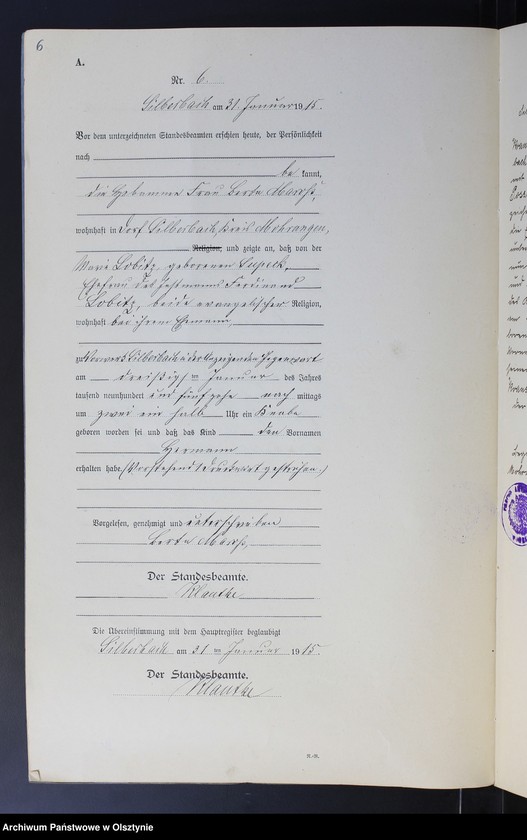 6
A.
Nr. 6.
Silberbach am 31. Januar 1915.
Vor dem unterzeichneten Standesbeamten erschien heute, der Persönlichkeit
nach
be kannt,
die Hebamme Frau Berta
wohnhaft in Dorf Silberbach, Kreis Mohrungen,
Religion, und zeigte an, daß von der
Marie Lobitz geborenen
Ehefrau des Ferdinand
Lobitz, beide evangelischer Religion,
wohnhaft bei ihrem Ehemann,
zu Vorwerk Silberbach in der Anzeigenden Gegenwart
am dreißigsten Januar des Jahres
tausend neunhundert und fünfzehn nach mittags
um zwei ein halb Uhr ein Knabe
geboren worden sei und daß das Kind den Vornamen
Hermann
erhalten habe. (Vorstehend 1 Druckwort gestrichen.)
Vorgelesen, genehmigt und unterschrieben
Berta
Der Standesbeamte.
Klautke
Die Übereinstimmung mit dem Hauptregister beglaubigt
Silberbach am 31 ten Januar 1915.
Der Standesbeamte.
Klautke
Archiwum Państwowe w Olsztynie